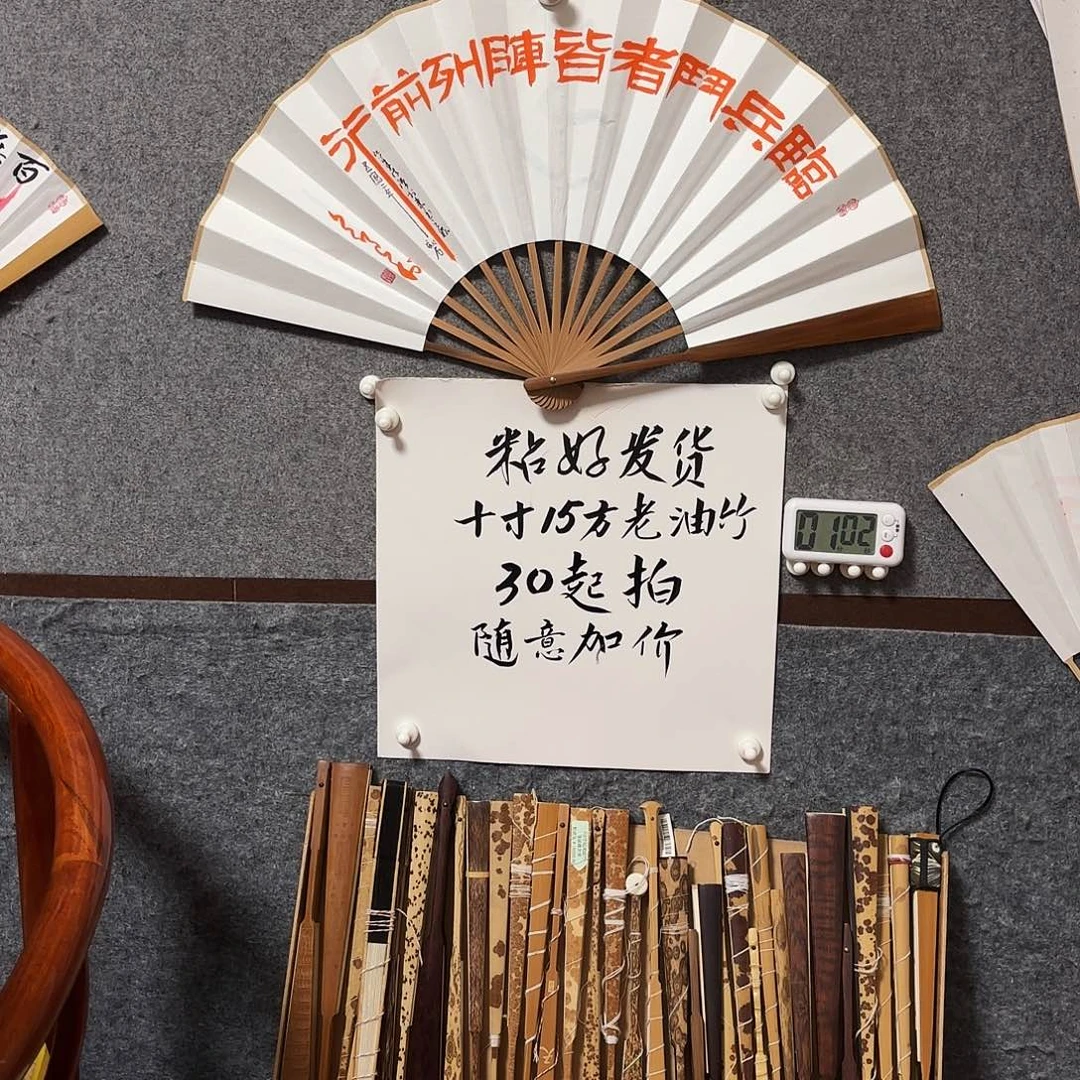 臨兵鬥者皆陣列前行
粘好发货
十寸15方老油竹
30起拍
随意加价
0102
百